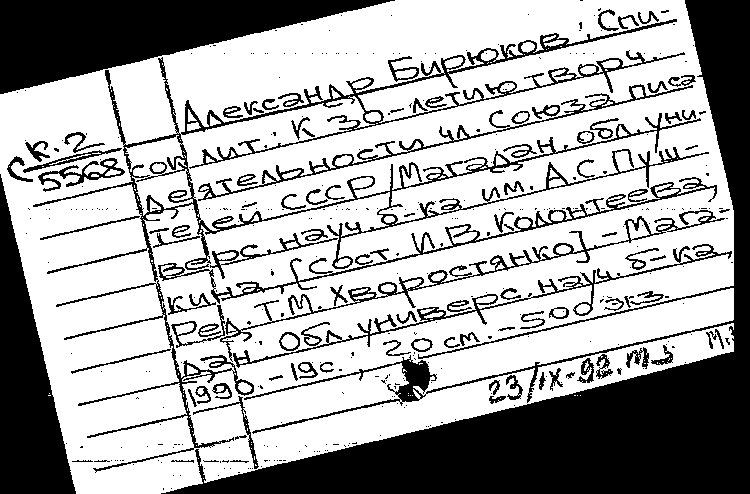 Александр Бирюков: Спи-
к.2
5568
сок лит.: К 30-летию творч.
деятельности чл. Союза писа-
телей СССР / Магадан. обл. уни-
верс. науч. б-ка им. А.С. Пуш-
кина; [Сост. И.В. Колонтеева;
Ред. Т.М. Хворостянко]. - Мага-
дан. Обл. универс. науч. б-ка,
1990. - 19с.; 20 см. - 500 экз.
23/IX-92.